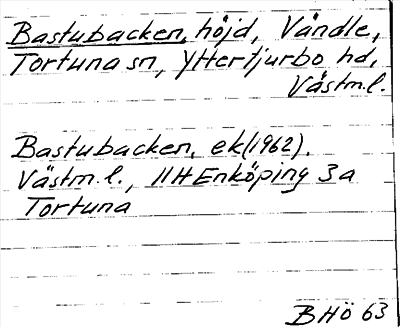 Bastubacken, höjd, Våndle,
Tortuna sn, Yttertjurbo hd,
Västm.l.
Bastubacken, ek (1962).
Västm.l., 11H Enköping 3a
Tortuna
BHÖ 63